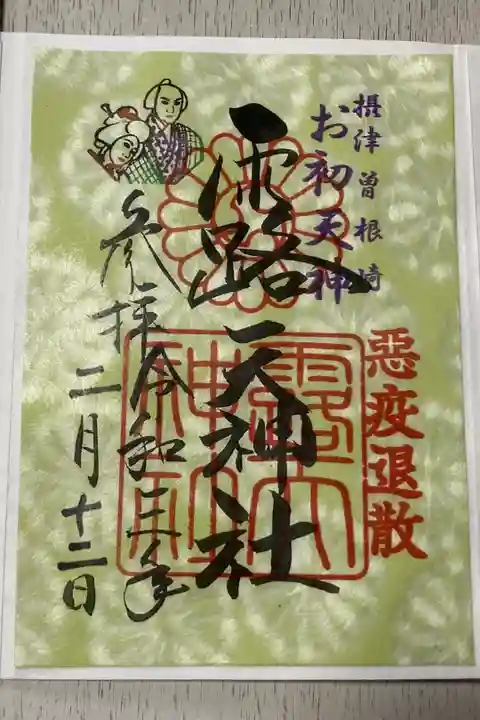 摂津曽根崎
お初天神
惡疫退散
露天神社
露天神社
参拝令和三年
二月十二日